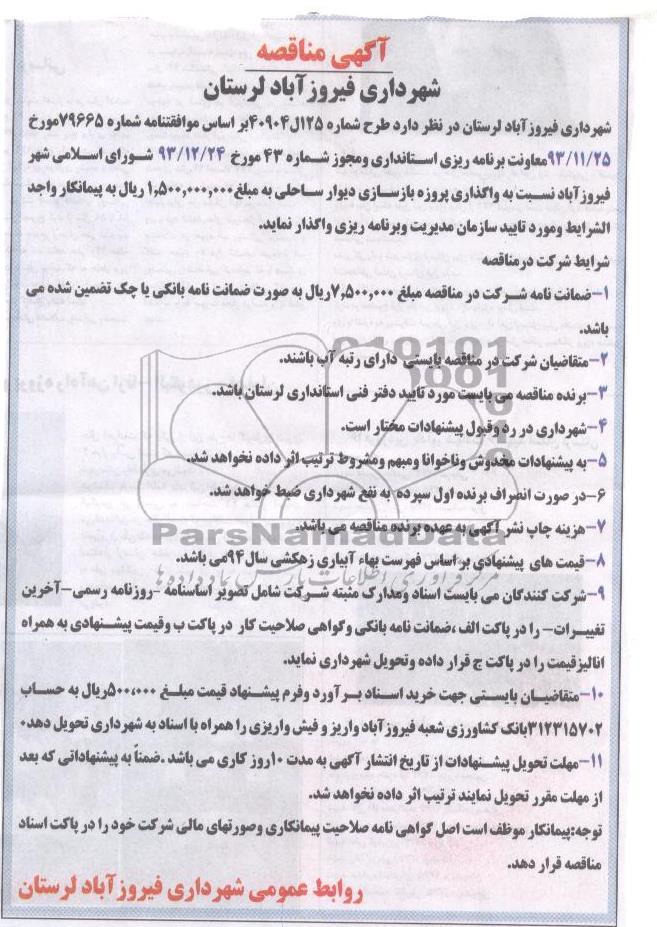 آگهی مناقصه
شهرداری فیروزآباد لرستان
شهرداری فیروزآباد لرستان در نظر دارد طرح شماره ۱۲۵ل۴۰۹۰۴بر اساس موافقتنامه شماره ۷۹۶۶۵مورخ
۹۳/۱۱/۲۵معاونت برنامه ریزی استانداری ومجوز شماره ۴۳ مورخ ۹۳/۱۲/۲۴ شورای اسلامی شهر
فیروزآباد نسبت به واگذاری پروژه بازسازی دیوار ساحلی به مبلغ۱,۵۰۰,۰۰۰,۰۰۰ ریال به پیمانکار واجد
الشرایط ومورد تایید سازمان مدیریت وبرنامه ریزی واگذار نماید.
شرایط شرکت درمناقصه
۱-ضمانت نامه شرکت در مناقصه مبلغ ۷,۵۰۰,۰۰۰ریال به صورت ضمانت نامه بانکی یا چک تضمین شده می
باشد.
۲-متقاضیان شرکت در مناقصه بایستی دارای رتبه آب باشند.
۳-برنده مناقصه می بایست مورد تایید دفتر فنی استانداری لرستان باشد.
۴-شهرداری در رد وقبول پیشنهادات مختار است.
۵-به پیشنهادات مخدوش وناخوانا ومبهم ومشروط ترتیب اثر داده نخواهد شد.
۶-در صورت انصراف برنده اول سپرده به نفع شهرداری ضبط خواهد شد.
۷-هزینه چاپ نشر آگهی به عهده برنده مناقصه می باشد.
ParsNamadData
۸-قیمت های پیشنهادی بر اساس فهرست بهاء آبیاری زهکشی سال ۹۴می باشد.
مرکز فرآوری اطلاعات پارس نماد داده ها
۹-شرکت کنندگان می بایست اسناد ومدارک مثبته شرکت شامل تصویر اساسنامه -روزنامه رسمی-آخرین
تغییرات- را در پاکت الف ،ضمانت نامه بانکی وگواهی صلاحیت کار در پاکت ب وقیمت پیشنهادی به همراه
انالیزقیمت را در پاکت ج قرار داده وتحویل شهرداری نماید.
۱۰-متقاضیان بایستی جهت خرید اسناد برآورد وفرم پیشنهاد قیمت مبلغ ۵۰۰,۰۰۰ریال به حساب
۳۱۲۳۱۵۷۰۲بانک کشاورزی شعبه فیروزآباد واریز و فیش واریزی را همراه با اسناد به شهرداری تحویل دهد۰
۱۱-مهلت تحویل پیشنهادات از تاریخ انتشار آگهی به مدت ۱۰روز کاری می باشد .ضمناً به پیشنهاداتی که بعد
از مهلت مقرر تحویل نمایند ترتیب اثر داده نخواهد شد.
توجه:پیمانکار موظف است اصل گواهی نامه صلاحیت پیمانکاری وصورتهای مالی شرکت خود را در پاکت اسناد
مناقصه قرار دهد.
روابط عمومی شهرداری فیروزآباد لرستان